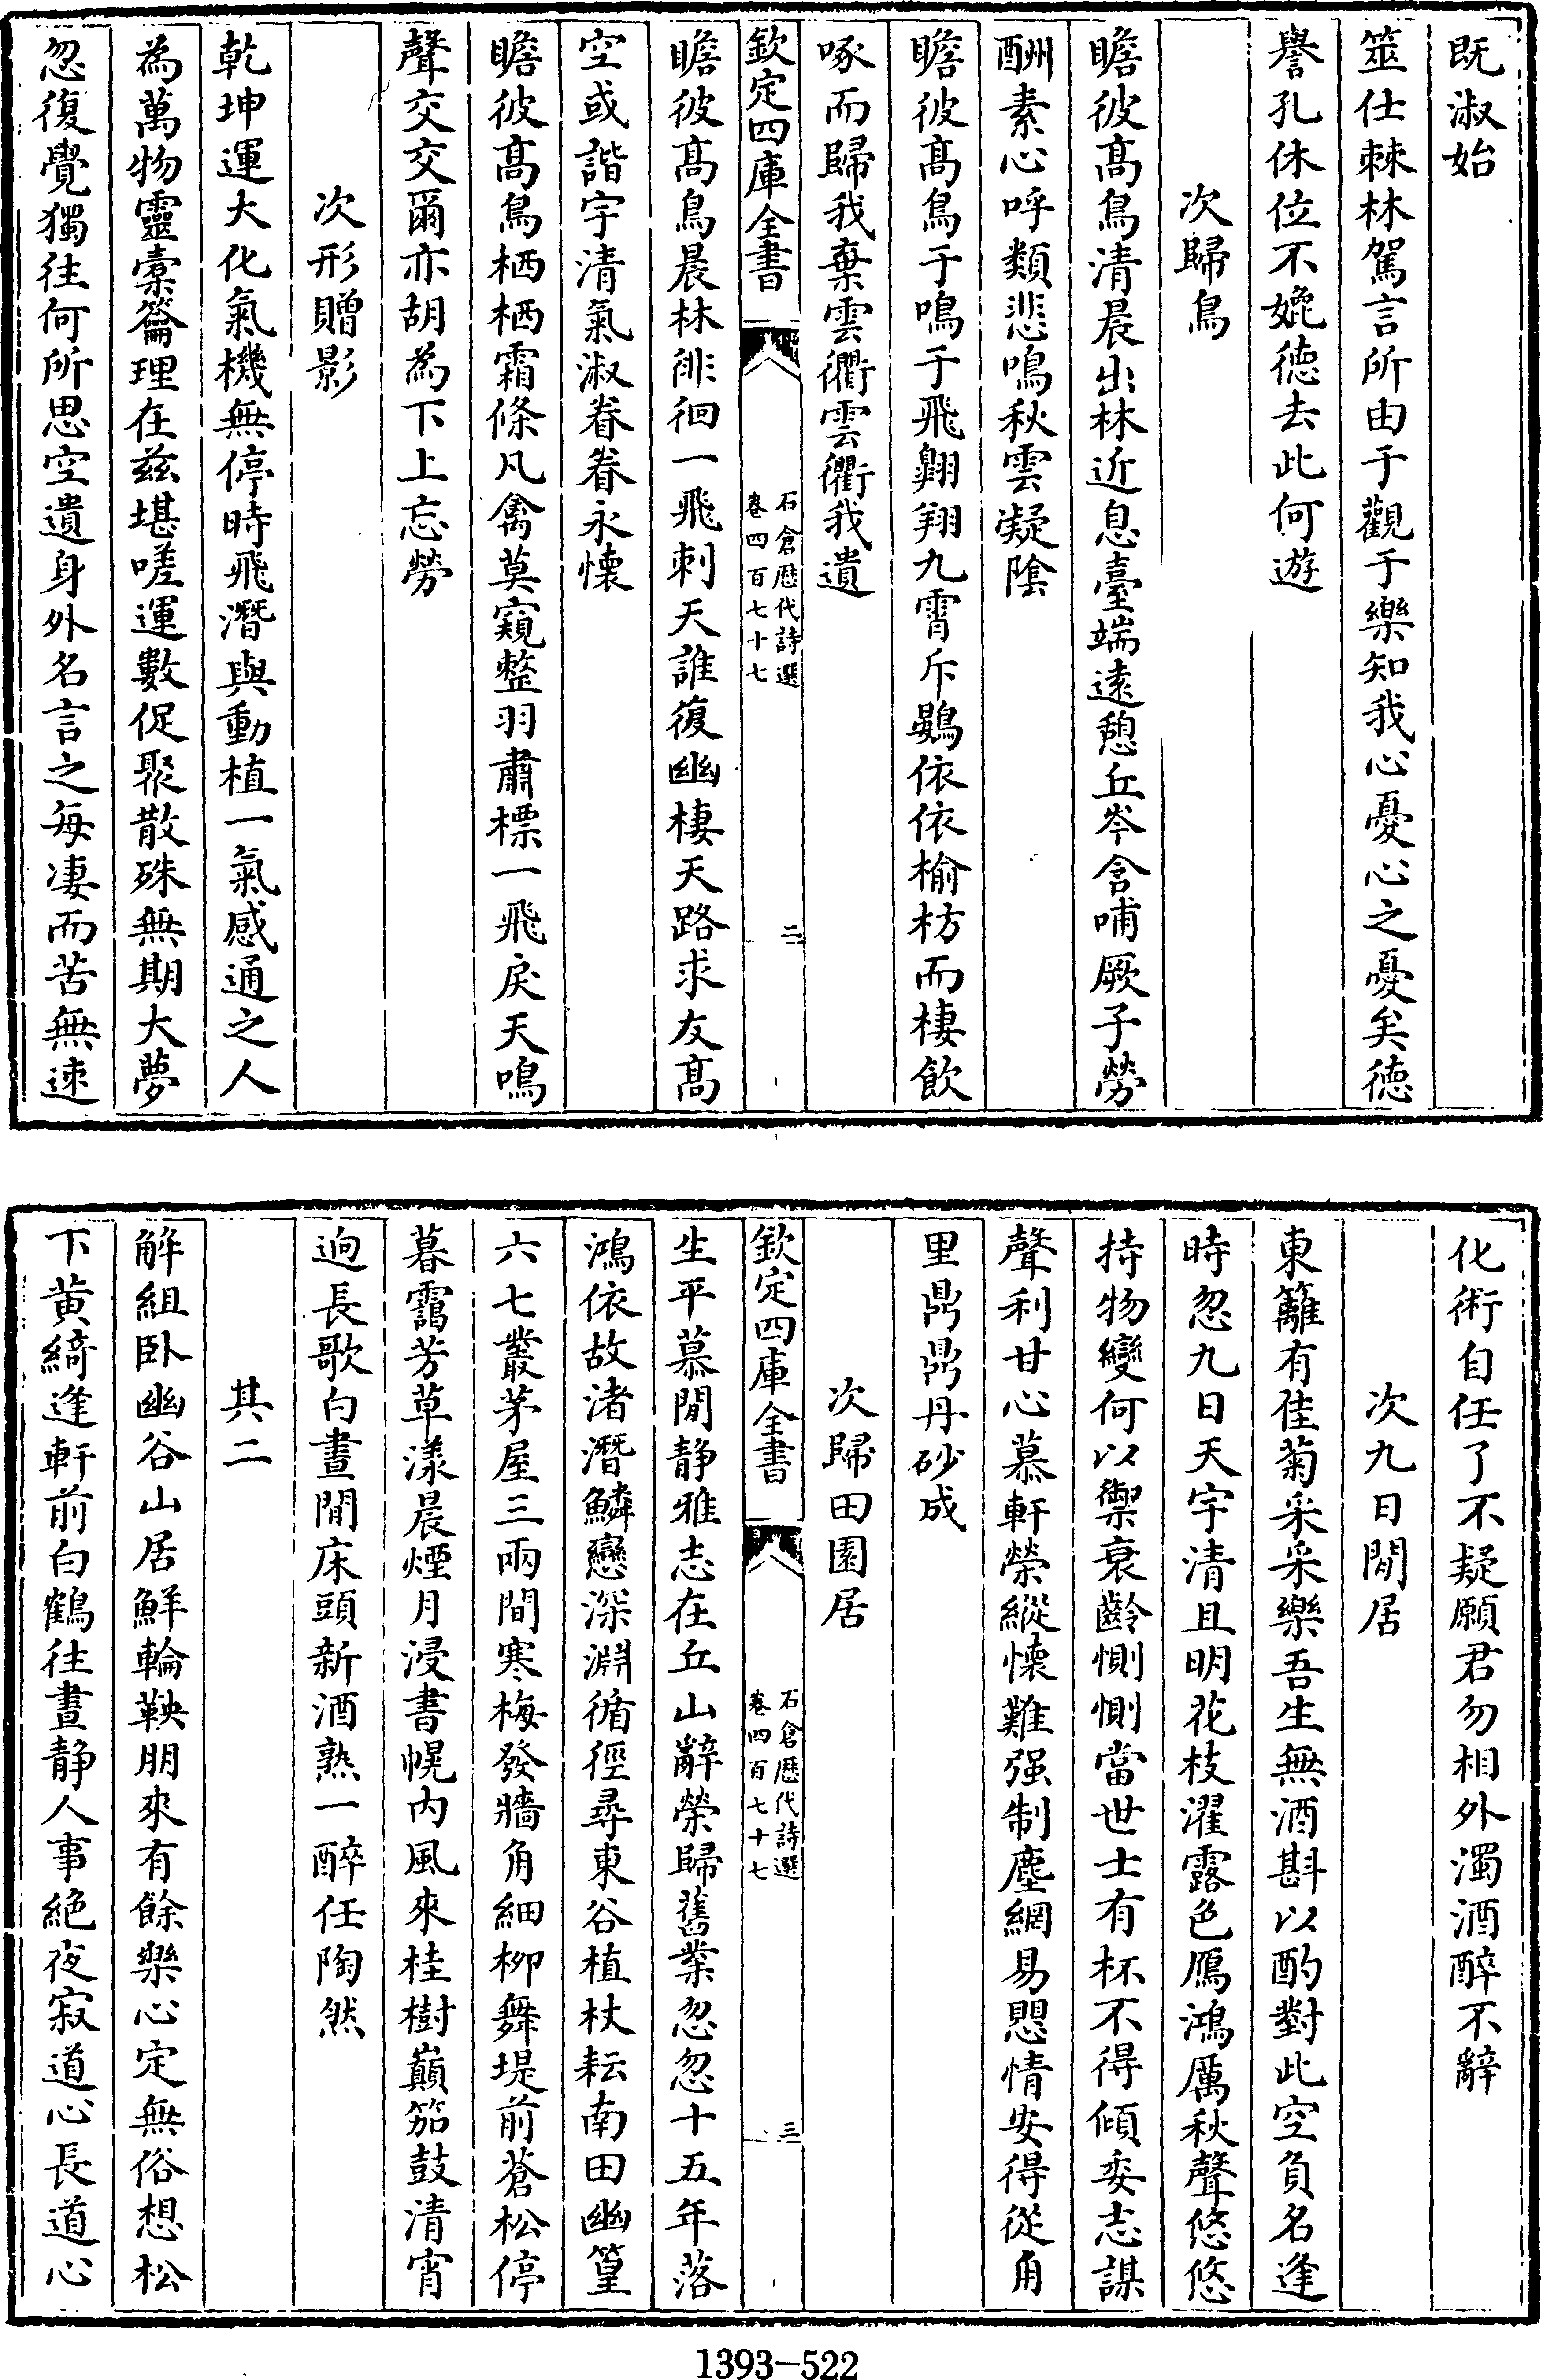 既淑始
筮仕棘林駕言所由于觀于樂知我心憂心之憂矣德
譽孔休位不媲德去此何遊
次歸鳥
瞻彼髙鳥清晨出林近息臺端逺憩丘岑含哺厥子勞
酬素心呼類悲鳴秋雲凝隂
瞻彼髙鳥于鳴于飛翺翔九霄斥鷃依依榆枋而棲飲
啄而歸我棄雲衢雲衢我遺
欽定四庫全書
石倉歴代詩選
卷四百七十七
二
瞻彼髙鳥晨林徘徊一飛刺天誰復幽棲天路求友髙
空或諧宇清氣淑眷眷永懐
瞻彼髙鳥栖栖霜條凡禽莫窺整羽肅標一飛戾天鳴
聲交交爾亦胡為下上忘勞
次形贈影
乾坤運大化氣機無停時飛潛與動植一氣感通之人
為萬物靈橐籥理在兹堪嗟運數促聚散殊無期大夢
忽復覺獨往何所思空遺身外名言之每凄而苦無速
化術自任了不疑願君勿相外濁酒醉不辭
次九日閒居
東籬有佳菊采采樂吾生無酒斟以酌對此空負名逢
時忽九日天宇清且明花枝濯露色鴈鴻厲秋聲悠悠
持物變何以禦衰齡惻惻當世士有杯不得傾委志謀
聲利甘心慕軒榮縱懐難强制塵網易愳情安得從角
里鼎鼎丹砂成
次歸田園居
欽定四庫全書
石倉歴代詩選
卷四百七十七
三
生平慕閒静雅志在丘山辭榮歸舊業忽忽十五年落
鴻依故渚潛鱗戀深淵循徑尋東谷植杖耘南田幽篁
六七叢茅屋三兩間寒梅發牆角細柳舞堤前蒼松停
暮靄芳草漾晨煙月浸書幌内風來桂樹巔笳鼓清宵
逈長歌白晝閒床頭新酒熟一醉任陶然
其二
解組卧幽谷山居鮮輪鞅朋來有餘樂心定無俗想松
下黄綺逢軒前白鶴往晝静人事絶夜寂道心長道心
1393-522